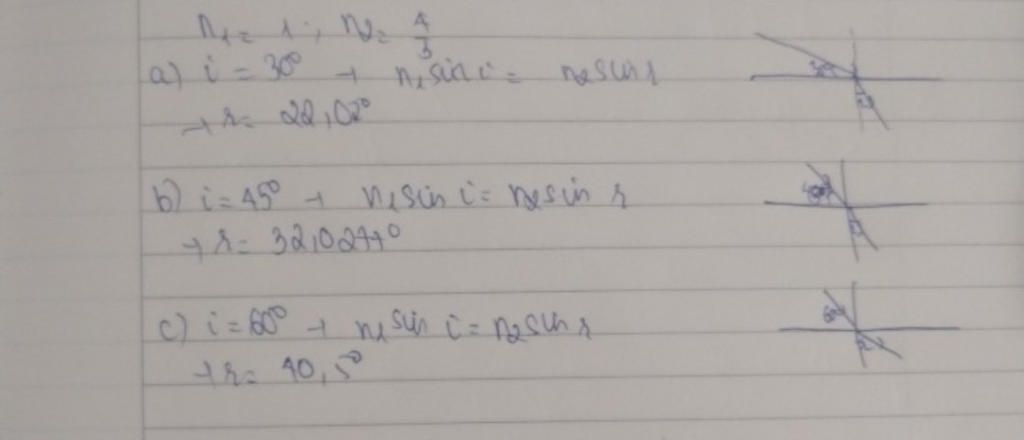 n₁ = 1 ; n₂ = 4/3
a) i = 30° → n₁ sin i = n₂ sin r
→ r = 22,02°
b) i = 45° → n₁ sin i = n₂ sin r
→ r = 32,02770
c) i = 60° → n₁ sin i = n₂ sin r
→ r = 40,5°
60°